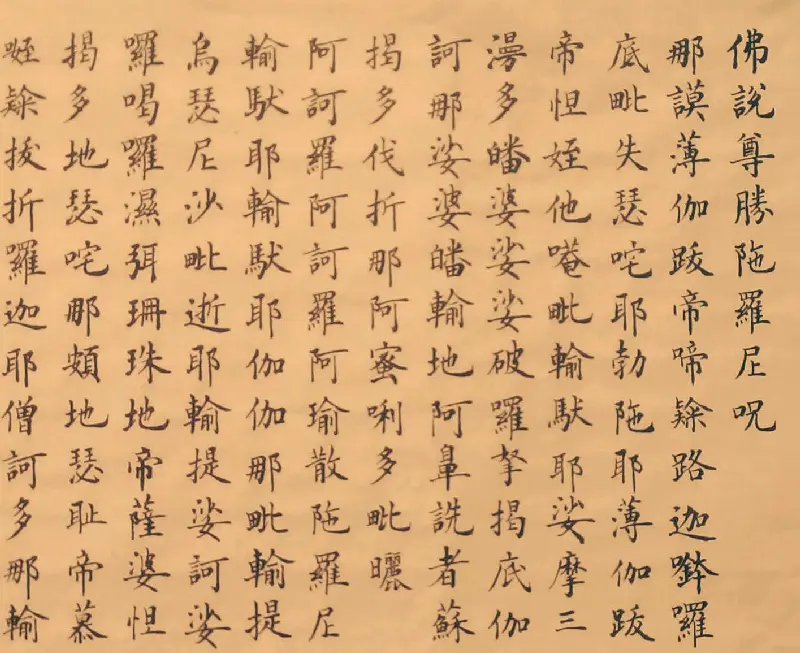 佛說尊勝陁羅尼呪
那謨薄伽跋帝啼隸路迦羅
底毗失瑟咤耶勃陁耶薄伽跋
帝怛姪他唵毗輸馱耶娑摩三
漫多皤婆娑娑破羅拏揭底伽
訶那娑婆皤輸地阿鼻詵者蘇
揭多伐折那阿蜜唎多毗曬
阿訶羅阿訶羅阿瑜散陁羅尼
輸馱耶輸馱耶伽伽那毗輸提
烏瑟尼沙毗逝耶輸提娑訶娑
羅喝羅濕弭珊珠地帝薩婆怛
揭多地瑟咤那頞地瑟耻帝慕
隸拔折羅迦耶僧訶多那輸